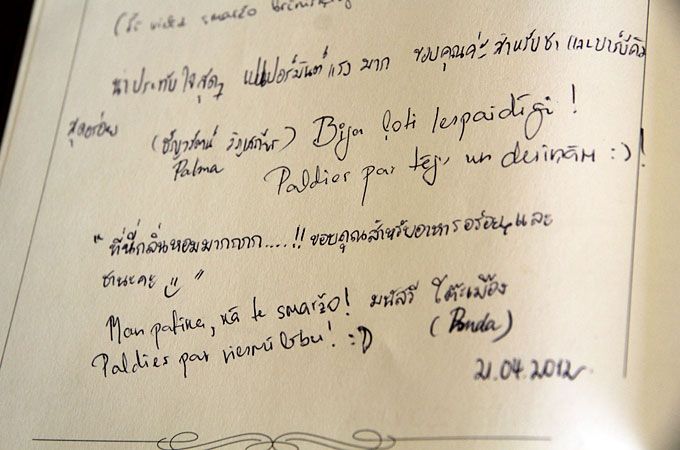 (Še video smaržo
น่าประทับใจสุดๆ เปเปอร์มินต์แรง มาก ขอบคุณค่ะ สำหรับชา และบาร์บีคิว
สุดอร่อย (ธัญวรัตน์
Bija ļoti iespaidīgi!
Palma
Paldies par tēju un desiņām :)!
"ที่นี่กลิ่นหอมมากกกก.....!! ขอบคุณสำหรับอาหารอร่อยๆและ
ชานะคะ "
Man patika, kā te smaržo! มนัสวี โต๊ะเมือง
Paldies par viesmīlību! :D (Panda)
21.04.2012